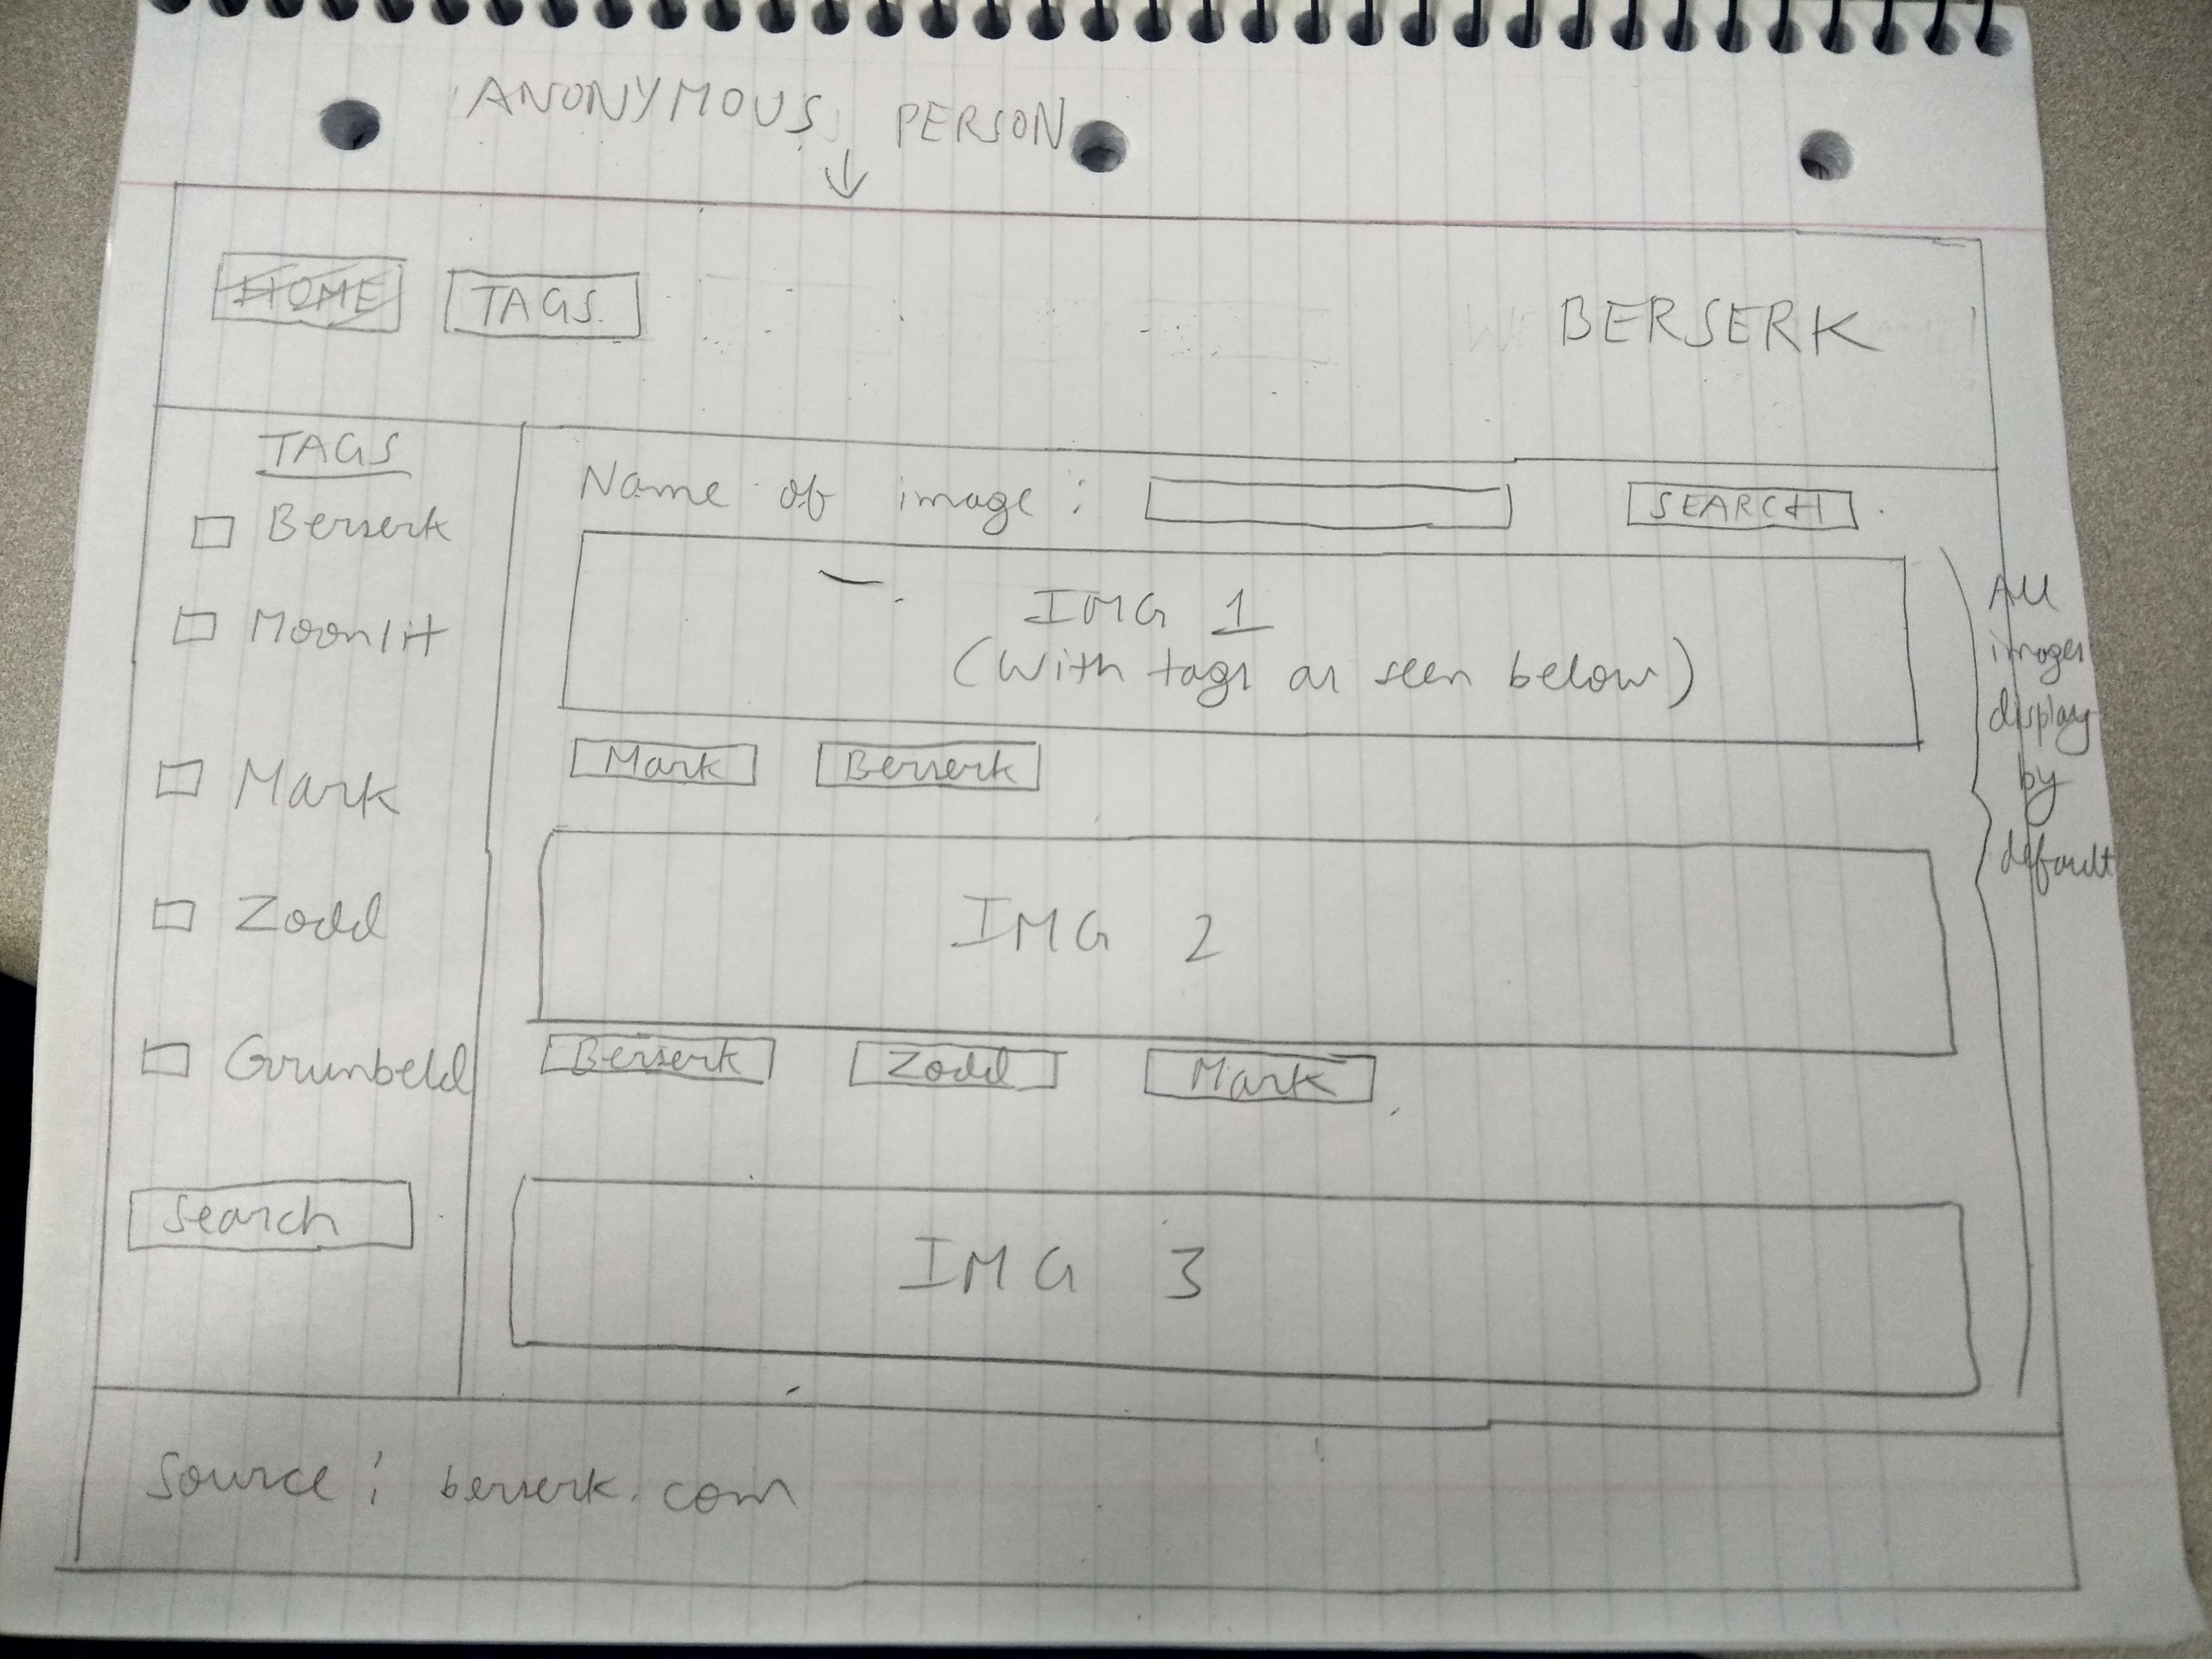 ANONYMOUS PERSON
HOME TAGS BERSERK
TAGS
Berserk
Moonlit
Mark
Zodd
Grunbeld
Search
Name of image : SEARCH
IMG 1
(With tags as seen below)
Mark Berserk
IMG 2
Berserk Zodd Mark
IMG 3
All
images
display
by
default
Source : berserk.com